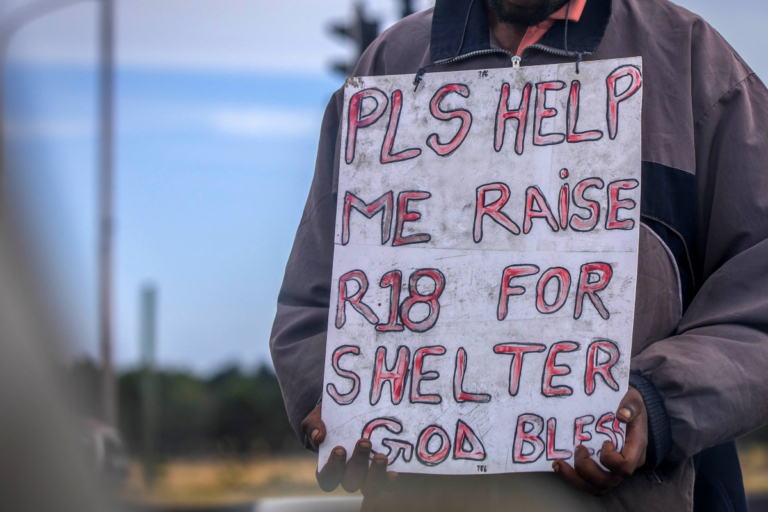 PLS HELP
ME RAiSE
R18 FOR
SHELTER
GOD BLESS